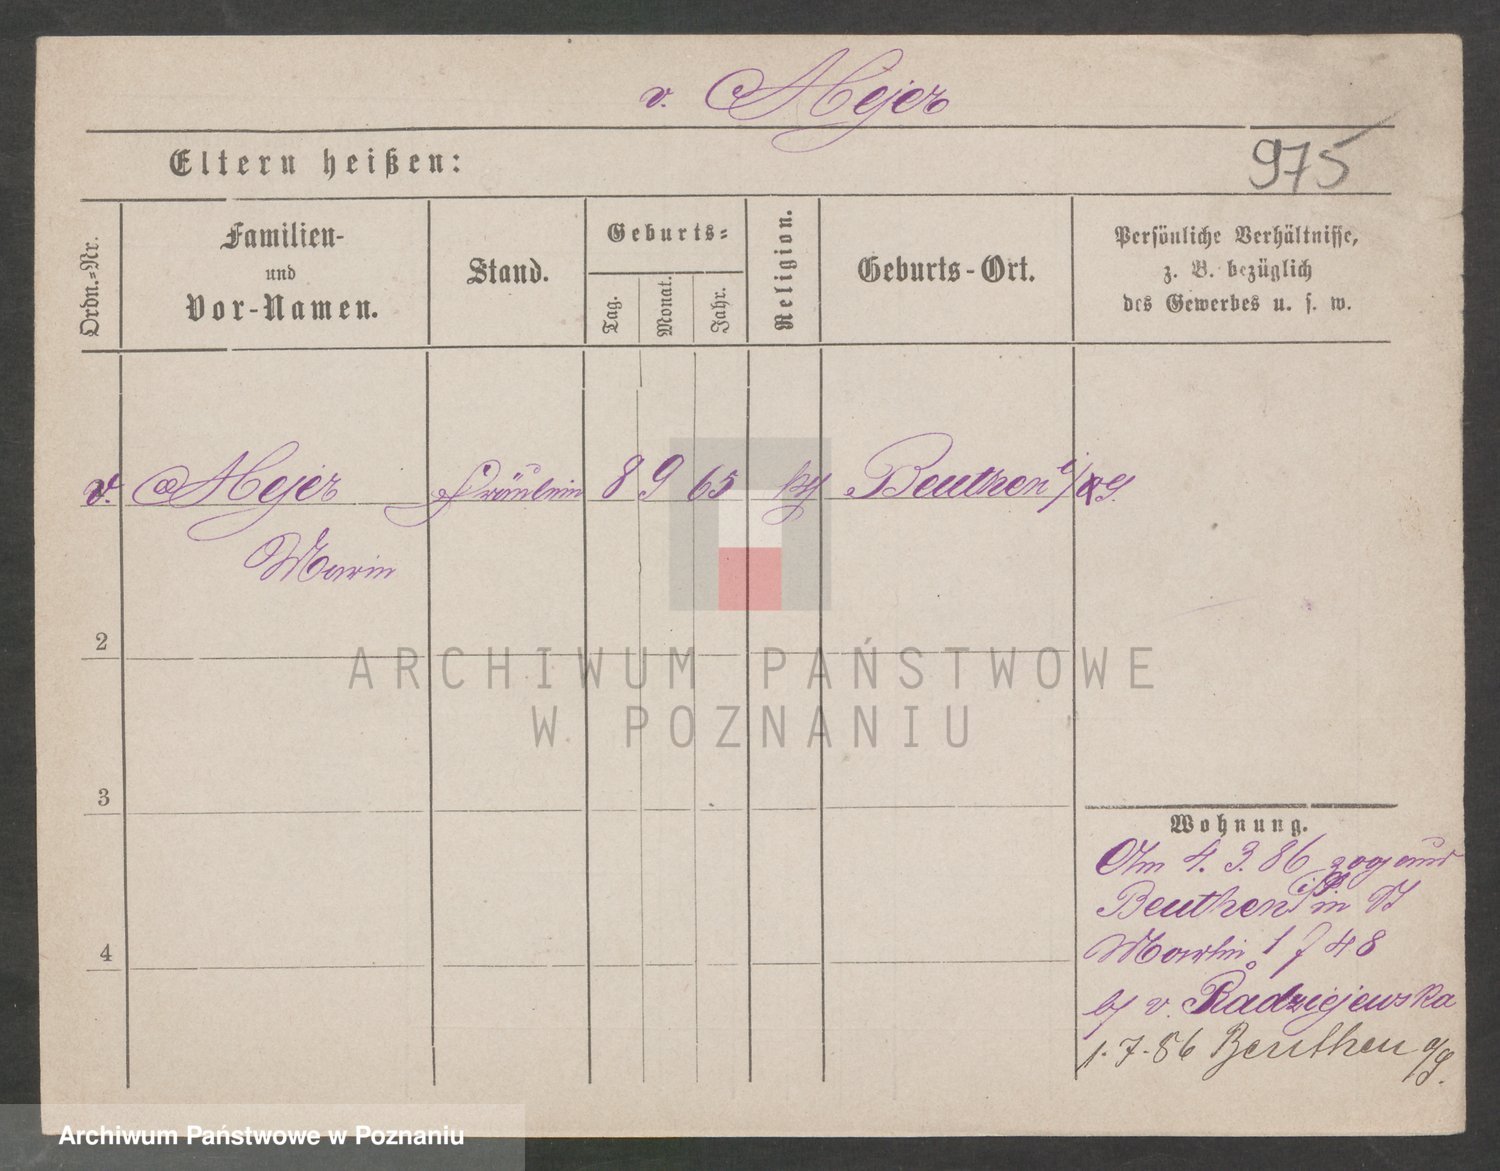 v. Mejer
Eltern heißen:
975
Ordn.-Nr.
Familien-
und
Vor-Namen.
Stand.
Geburts-
Tag.
Monat.
Jahr.
Religion.
Geburts-Ort.
Persönliche Verhältnisse,
z. B. bezüglich
des Gewerbes u. s. w.
v. Mejer Fräulein 8 9 65 Beuthen
Marie
2
ARCHIWUM PAŃSTWOWE
W POZNANIU
3
Wohnung.
Am 4. 3. 86 zog aus
Beuthen in St
Martin 1 f 48
b/ v. Radziejewska
4
1.7.86 Beuthen
Archiwum Państwowe w Poznaniu